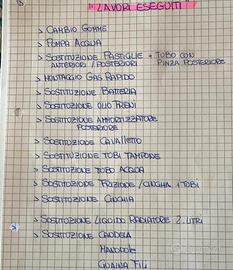 LAVORI ESEGUITI
> CAMBIO GOMME
> POMPA ACQUA
> SOSTITUZIONE PASTIGLIE + TUBO CON
ANTERIORI / POSTERIORI PINZA POSTERIORE
> MONTAGGIO GAS RAPIDO
> SOSTITUZIONE BATTERIA
> SOSTITUZIONE OLIO FRENI
> SOSTITUZIONE AMMORTIZZATORE
POSTERIORE
> SOSTITUZIONE CAVALLETTO
> SOSTITUZIONE TUBI TAMPONE
> SOSTITUZIONE TUBO ACQUA
> SOSTITUZIONE FRIZIONE / CINGHIA + TUBI
> SOSTITUZIONE CINGHIA
> SOSTITUZIONE LIQUIDO RADIATORE 2 LITRI
> SOSTITUZIONE CANDELA
MANOPOLE
GUAINA FILI